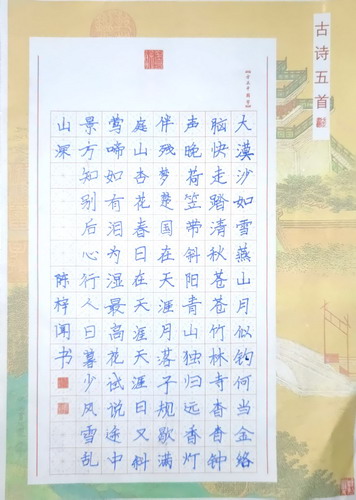 古诗五首
大漠沙如雪燕山月似钩何当金络
脑快走踏清秋苍苍竹林寺杳杳钟
声晚荷笠带斜阳青山独归远香灯
伴残梦楚国在天涯月落子规歇满
庭山杏花春日在天涯天涯日又斜
莺啼如有泪为湿最高花试说途中
景方知别后心行人日暮少风雪乱
山深
陈梓闻书